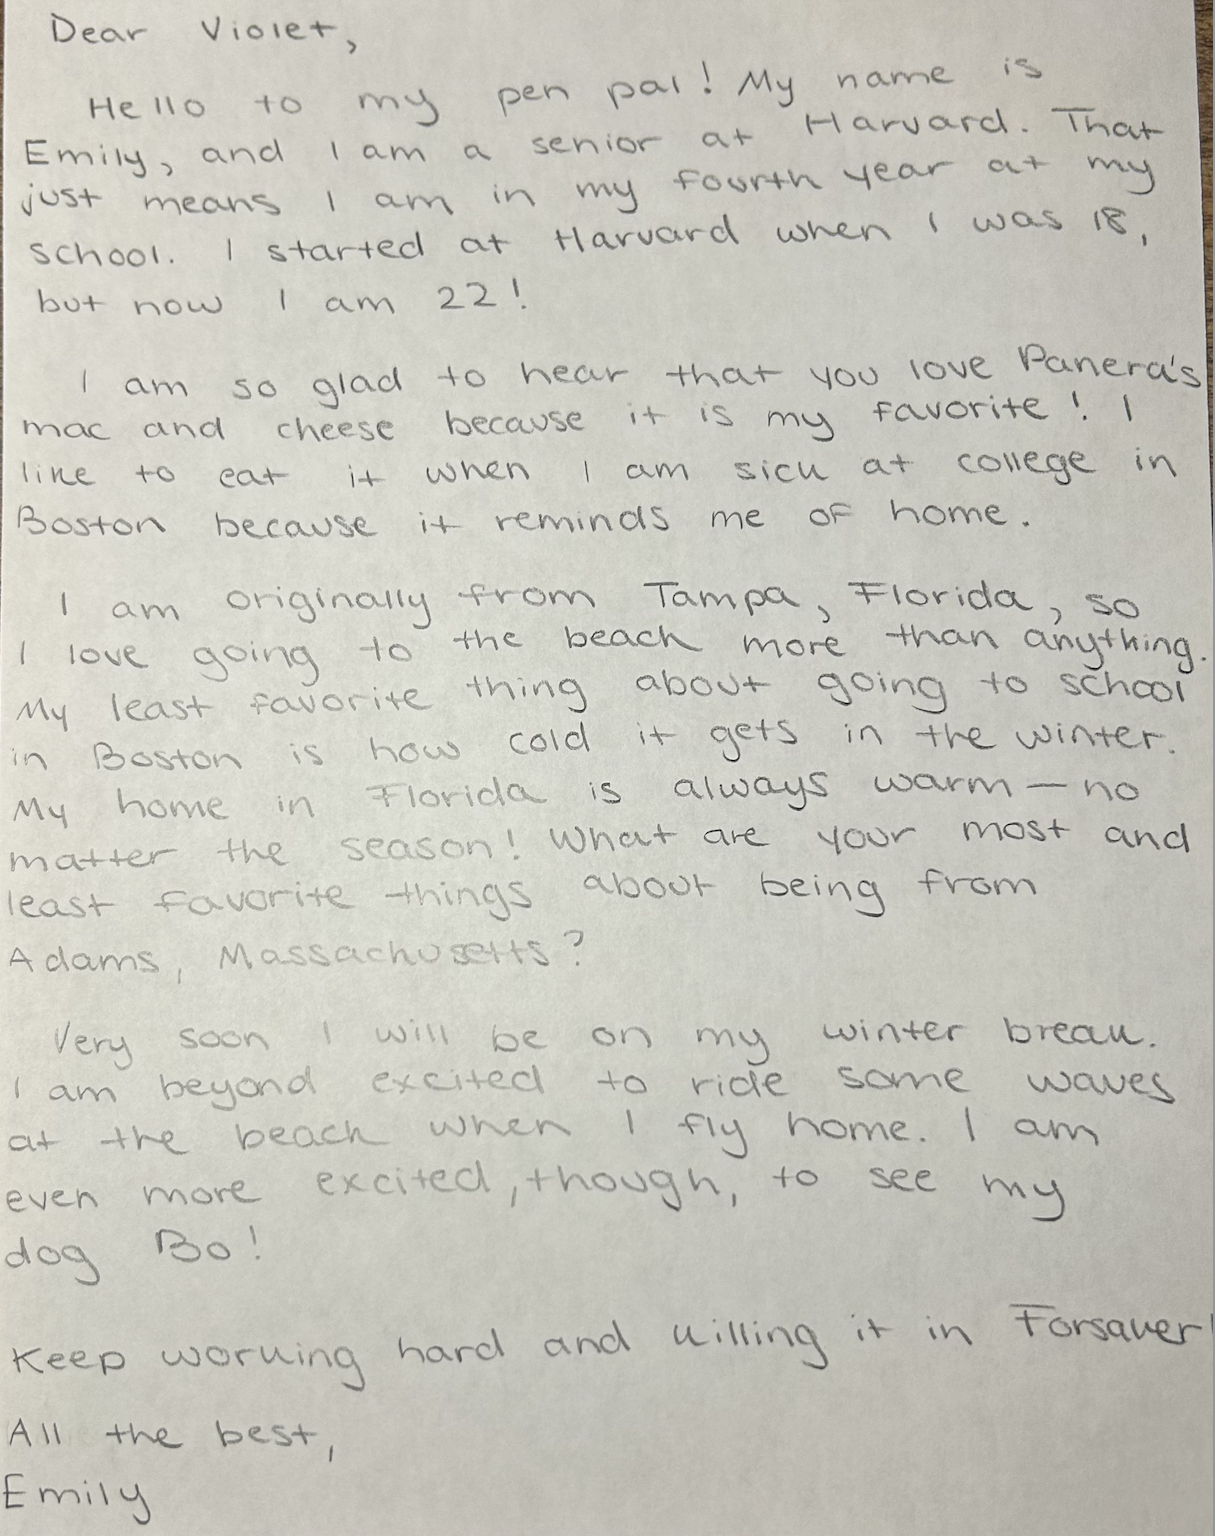 Dear Violet,
Hello to my pen pal! My name is
Emily, and I am a senior at Harvard. That
just means I am in my fourth year at my
school. I started at Harvard when I was 18,
but now I am 22!
I am so glad to hear that you love Panera's
mac and cheese because it is my favorite! I
like to eat it when I am sick at college in
Boston because it reminds me of home.
I am originally from Tampa, Florida, so
I love going to the beach more than anything.
My least favorite thing about going to school
in Boston is how cold it gets in the winter.
My home in Florida is always warm — no
matter the season! What are your most and
least favorite things about being from
Adams, Massachusetts?
Very soon I will be on my winter break.
I am beyond excited to ride some waves
at the beach when I fly home. I am
even more excited, though, to see my
dog Bo!
Keep working hard and killing it in Forsaver!
All the best,
Emily